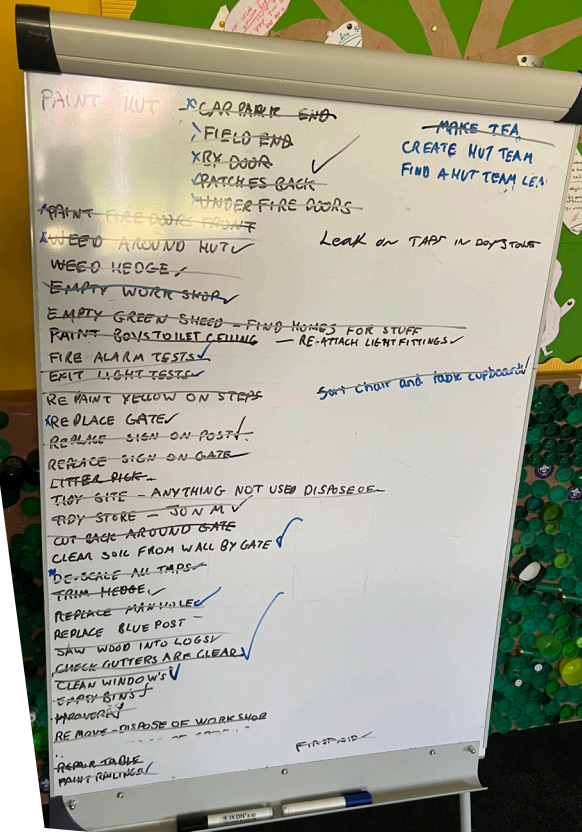 PAINT HUT
CAR PARK END
FIELD END
BY DOOR
PATCHES BACK
UNDER FIRE DOORS
MAKE TEA
CREATE HUT TEAM
FIND A HUT TEAM
PAINT FIRE DOORS FRONT
WEED AROUND HUT
LEAK ON TAPS IN BOYS
WEED HEDGE
EMPTY WORK SHOP
EMPTY GREEN SHED - FIND HOMES FOR STUFF
PAINT BOYS TOILET CEILING - RE-ATTACH LIGHT FITTINGS
FIRE ALARM TESTS
EXIT LIGHT TESTS
Sort chair and table cupboard
RE PAINT YELLOW ON STEPS
REPLACE GATE
REPLACE SIGN ON POST
REPLACE SIGN ON GATE
LITTER PICK
TIDY SITE - ANYTHING NOT USED DISPOSE OF
TIDY STORE - JON M
CUT BACK AROUND GATE
CLEAR SOIL FROM WALL BY GATE
DE-SCALE ALL TAPS
TRIM HEDGE
REPLACE MANHOLE
REPLACE BLUE POST -
SAW WOOD INTO LOGS
CHECK GUTTERS ARE CLEAR
CLEAN WINDOWS
EMPTY BINS
REMOVE - DISPOSE OF WORKSHOP
FIRST AID
REPAIR TABLE
PAINT RAILINGS
IKON